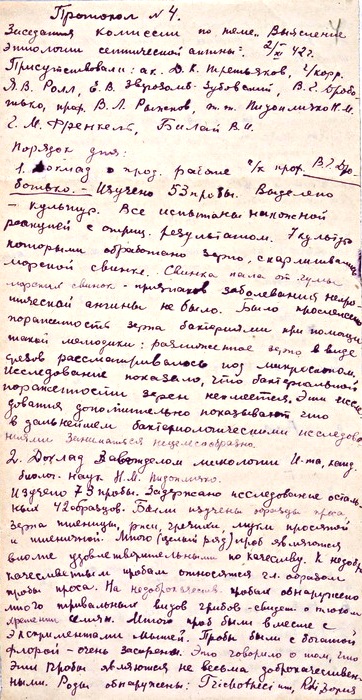 Протокол N 4.
Заседания комиссии по теме „Выяснение
этиологии септической ангины": 2/XI 42 г.
Присутствовали: ак. Д.К. Третьяков, ч/корр.
Я.В. Ролл, Е.В. Зверозомб-Зубовский, В.Г. Дробо
тько, проф. В.Л. Рыжков, т.т. Пидопличко Н.М.
С.М. Френкель, Билай В.И.
Порядок дня:
1. Доклад о прод. работе ч/к проф. В.Г. Дро
ботько. - Изучено 53 пробы. Выделено
- культур. Все испытаны накожной
реакцией с отриц. результатом. 7 культур
которыми обработано зерно, скармливались
морской свинке. Свинка пала от чумы
морских свинок - признаков заболевания
септической ангины не было. Было прослежено
пораженность зерна бактериями при помощи
такой методики: размоченное зерно в виде
срезов рассматривалось под микроскопом.
Исследование показало, что бактериальной
пораженности зерен не имеется. Эти иссле
дования дополнительно показывают что
в дальнейшем бактериологическими исследова
ниями заниматься нецелесообразно.
2. Доклад Завотделом микологии И-та, канд.
биолог. наук Н.М. Пидопличко.
Изучено 73 пробы. Задержано исследование осталь
ных 42 образцов. Были изучены образцы проса,
зерна пшеницы, ржи, гречихи, муки просяной
и пшеничной. Много (целый ряд) проб являются
вполне удовлетворительными по качеству. К недобро
качественным пробам относятся гл. образом
пробы проса. На недоброкачеств. пробах обнаружено
много тривиальных видов грибов - свидет. о плохом
хранении семян. Много проб были вместе с
экскрементами мышей. Пробы были с богатой
флорой - очень засорены. Это говорило о том, что
эти пробы являются не весьма доброкачествен
ными. Роды обнаружены: Trichotheci um,